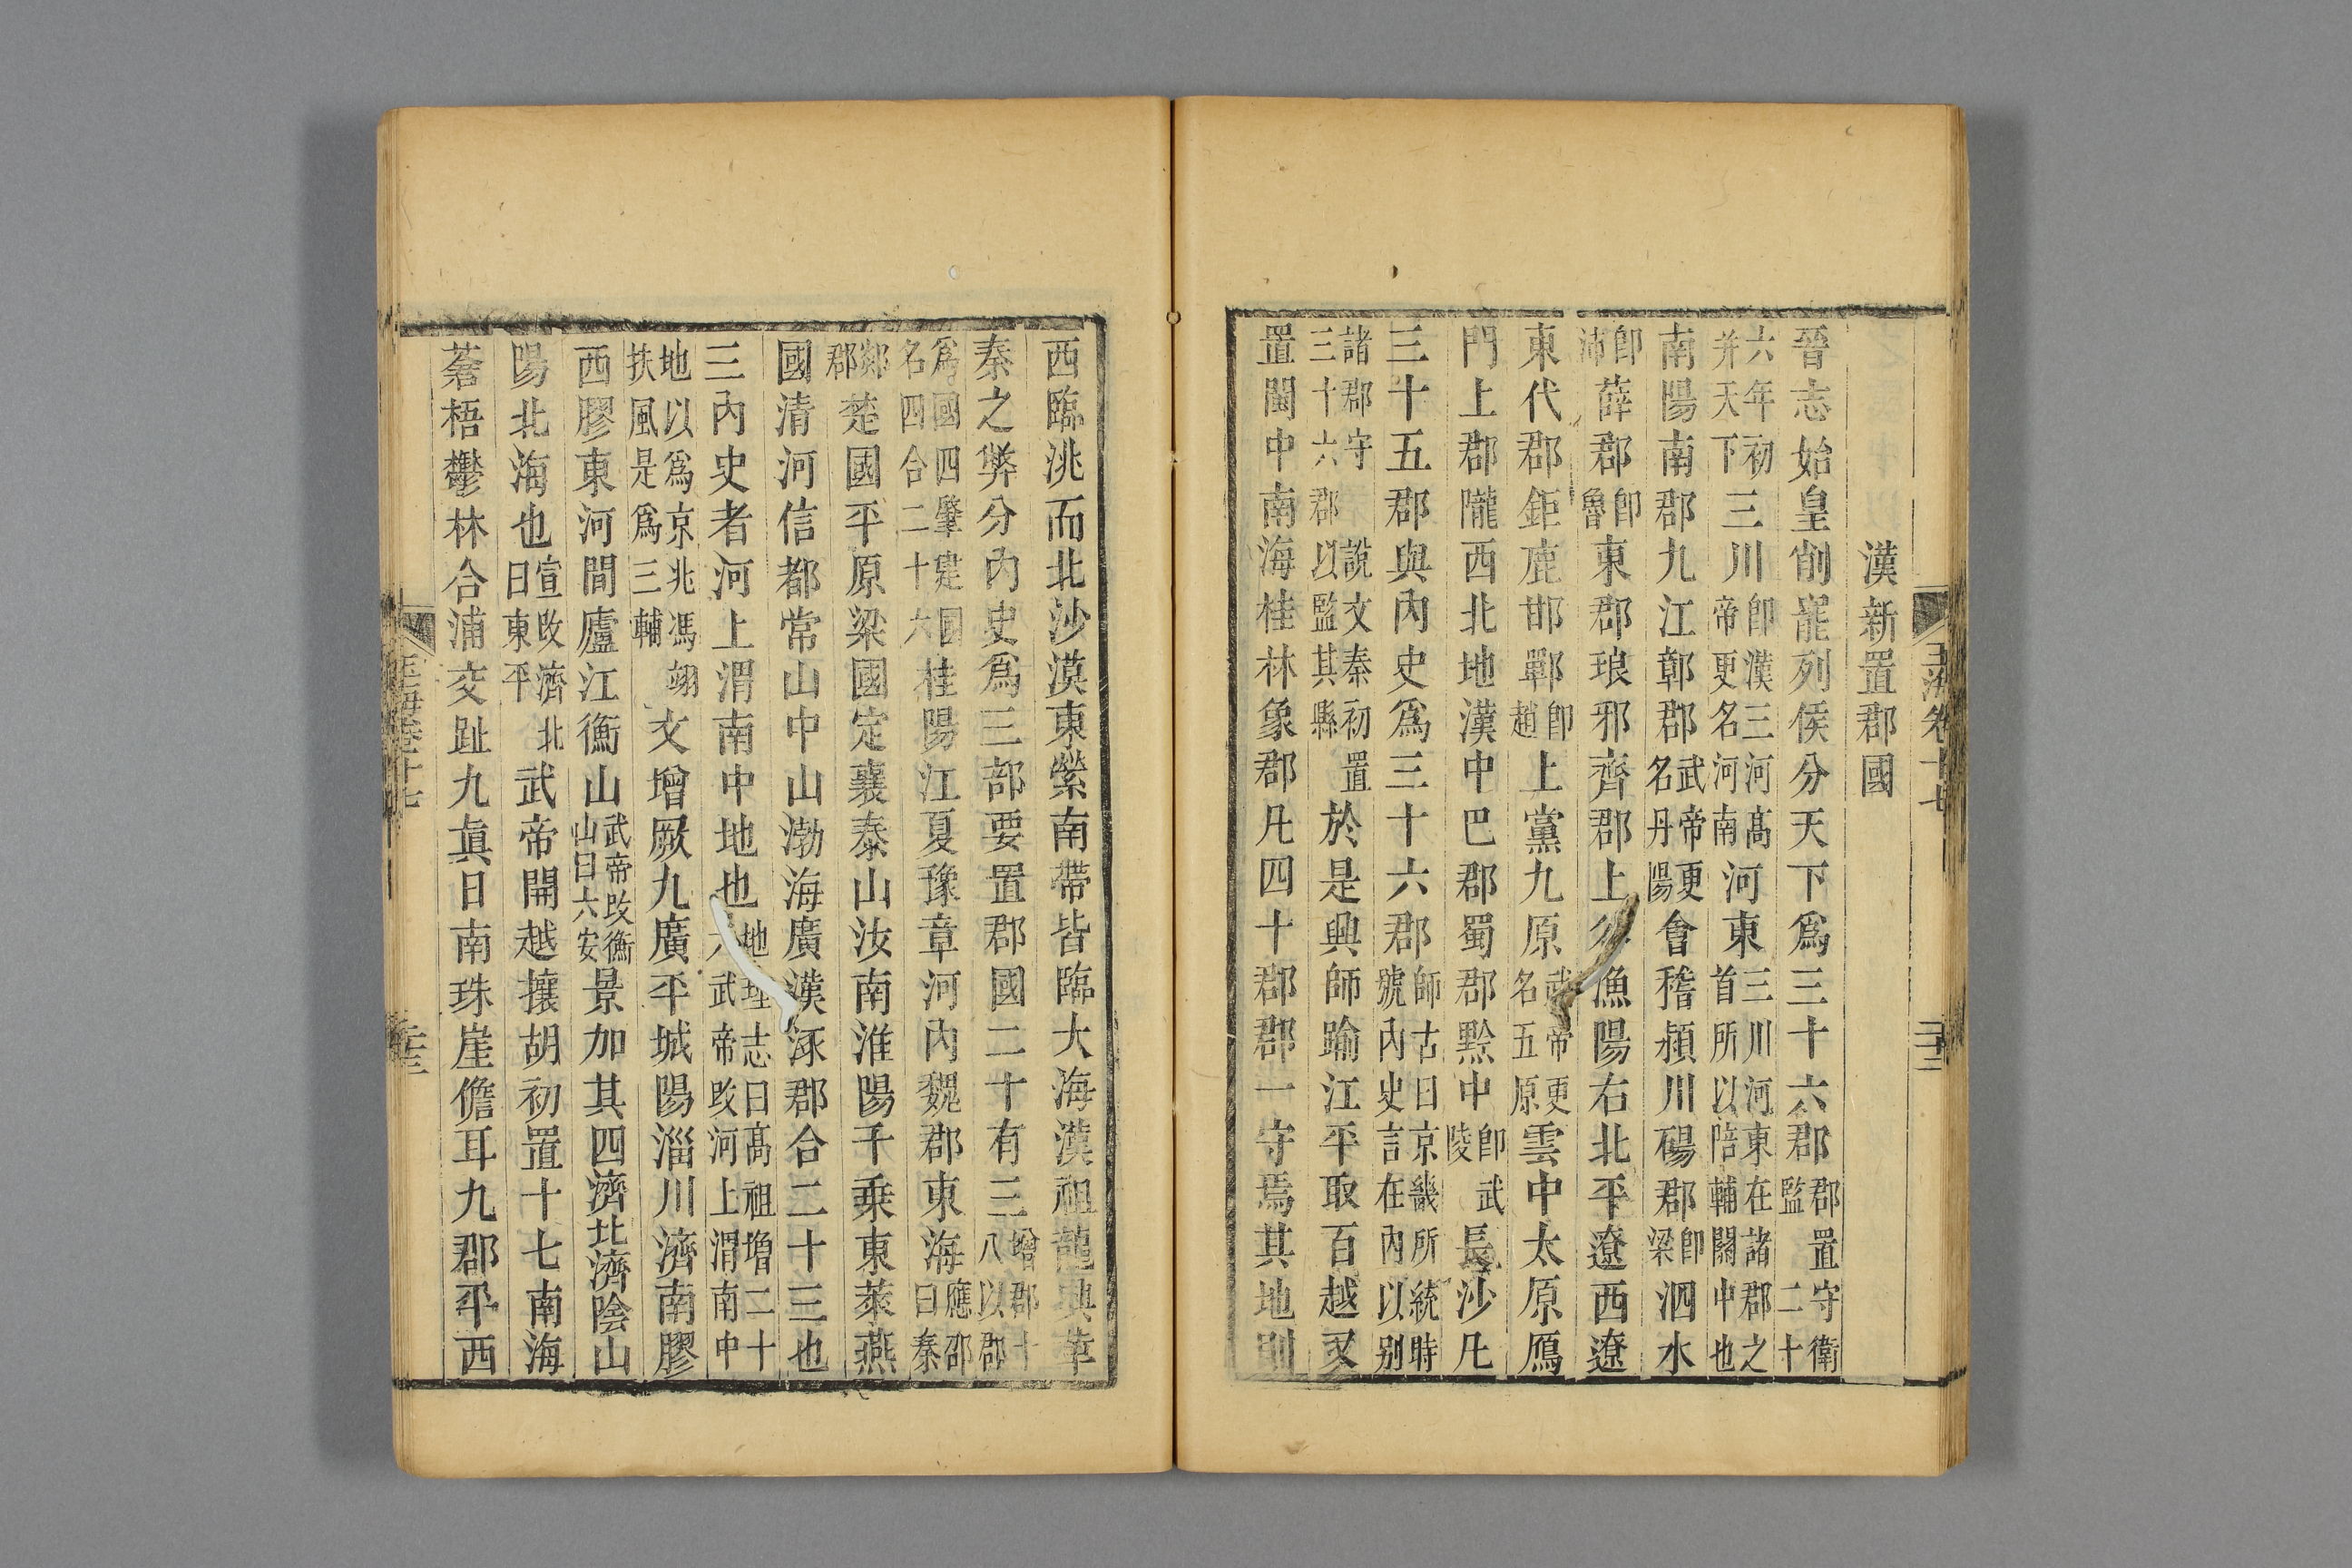 玉海卷十七
二十二
漢新置郡國
晉志始皇削罷列侯分天下為三十六郡郡置守衛監二十
六年初并天下三川即漢三河髙帝更名河南河東三川河東在諸郡之首所以陪輔關中也
南陽南郡九江鄣郡武帝更名丹陽會稽潁川碭郡即梁泗水
即沛薛郡即魯東郡琅邪齊郡上漁陽右北平遼西遼
東代郡鉅鹿邯鄲即趙上黨九原武帝更名五原雲中太原鴈
門上郡隴西北地漢中巴郡蜀郡黔中即武陵長沙凡
三十五郡與內史為三十六郡師古曰京畿所統時號內史言在內以别
諸郡守說文秦初置三十六郡以監其縣於是興師踰江平取百越又
置閩中南海桂林象郡凡四十郡郡一守焉其地則
西臨洮而北沙漠東縈南帶皆臨大海漢祖龍興革
秦之弊分內史為三部要置郡國二十有三增郡十八以郡
為國四肇建國名四合二十六桂陽江夏豫章河內魏郡東海應邵曰秦
郯郡楚國平原梁國定襄泰山汝南淮陽千乗東萊燕
國清河信都常山中山渤海廣漢涿郡合二十三也
三內史者河上渭南中地也地理志曰髙祖增二十六武帝改河上渭南中
地以為京兆馮翊扶風是為三輔文增厥九廣平城陽淄川濟南膠
西膠東河間廬江衡山武帝改衡山曰六安景加其四濟北濟陰山
陽北海也宣改濟北曰東平武帝開越攘胡初置十七南海
蒼梧鬱林合浦交趾九真日南珠崖儋耳九郡平西
玉海卷十七
二十三